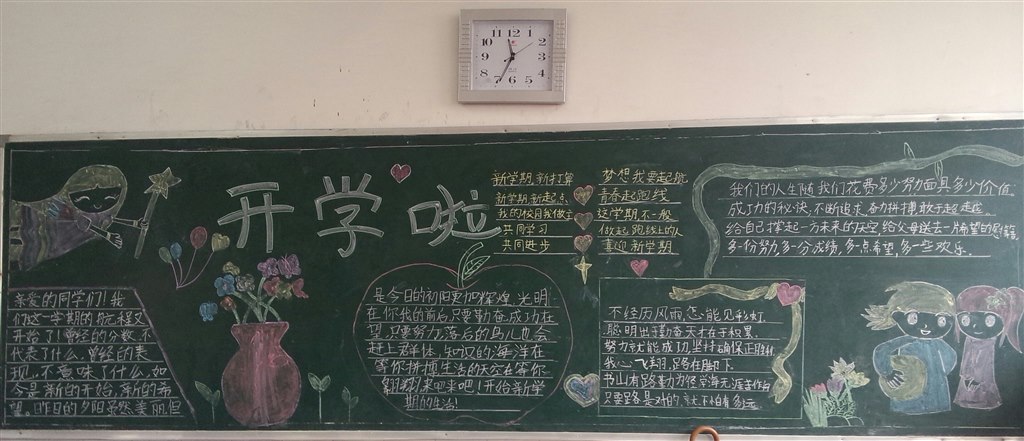 11 12 1
10 2
9 3
8 4
7 6 5
开学啦
新学期,新打算
新学期,新起点
我的校园我做主
共同学习
共同进步
梦想我要起航
青春起跑线
这学期不一般
做起跑线上的人
喜迎新学期
亲爱的同学们!我
们这一学期的航程又
开始了!曾经的分数,不
代表了什么,曾经的表
现,不意味了什么,如
今是新的开始,新的希
望,昨日的夕阳虽然美丽,但
是今日的初阳更加辉煌,光明
在你我的前后,只要勤奋,成功在
望,只要努力,落后的鸟儿也会
赶上群体,知识的海洋在
等你拼搏,生活的天空在等你
翱翔!来吧来吧!开始新学
期的生活!
我们的人生随我们花费多少努力而具多少价值
成功的秘诀,不断追求,奋力拼搏,敢于超走在
给自己撑起一方未来的天空,给父母送去一片希望的
多一份努力,多一分成绩,多一点希望,多一些欢乐.
不经历风雨,怎能见彩虹
聪明出于勤奋,天才在于积累
努力就能成功,坚持确保正胜利
我心飞翔,路在脚下
书山有路勤为径,学海无涯苦作舟
只要路是对的,就不怕有多远